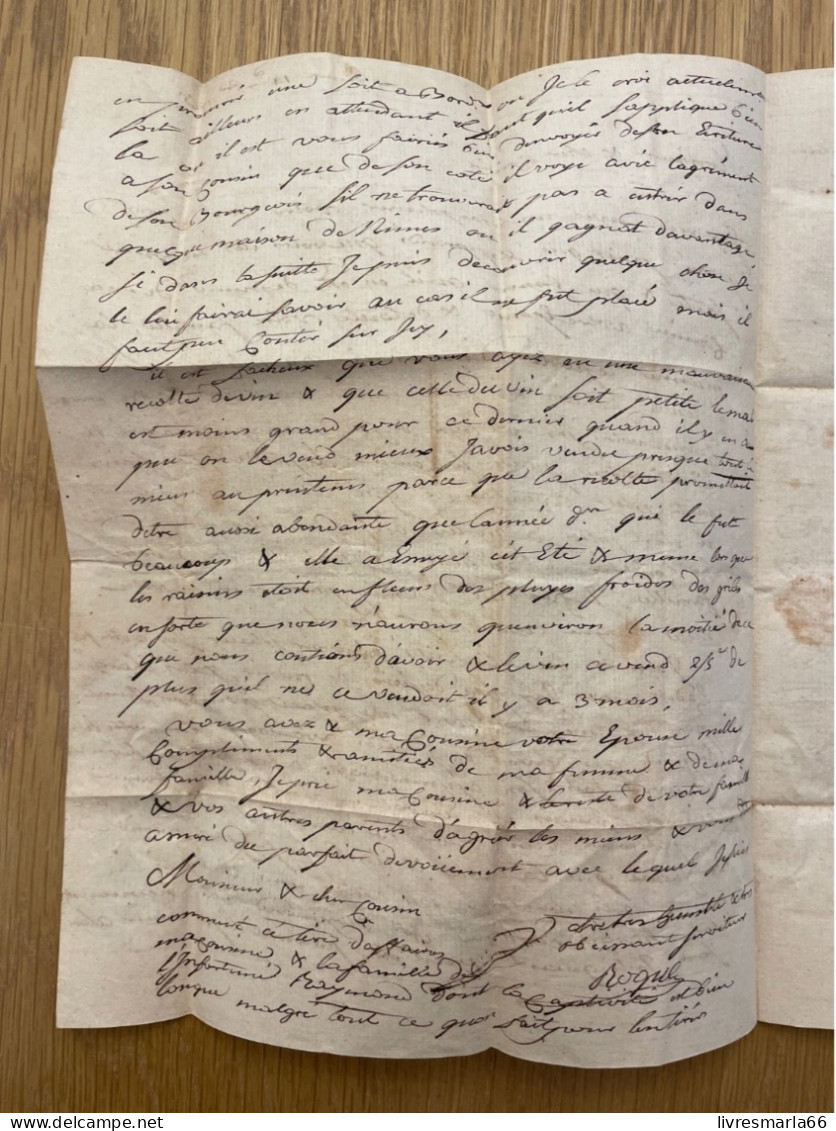 en trouvé une soit a Bord on Je le croi actuellem
soit ailleurs en attendant il faut quil sapplique bien
la il est vous fairiés bien denvoyér de son Ecriture
a son Cousin que de son coté il voye avéc lagrément
de son Bourgeois sil ne trouverait pas a entrér dans
quelque maison de Nimes ou il gagnat davantage
si dans la suitte Je puis decouvrir quelque chose Je
le lui fairai savoir au cas il ne fut placé mais il
faut peu Contér sur Juy,
il est facheux que vous ayez eu une mauvaise
recolte de vin & que celle du vin soit petite le mal
est moins grand pour ce dernier quand il y en a
peu on le vend mieux Javois vendu presque tout le
mien au printems parce que la recolte promettoit
détre aussi abondante que lannée dre qui le fut
beaucoup & elle a Essuyé cét Eté & meme lorsque
les raisins étoit en fleurs des pluyes froides des gréles
en sorte que nous n'aurons quenviron la moitié de ce
que nous contions davoir & le vin ce vend 2/3 de
plus quil ne ce vendoit il y a 3 mois,
vous avez & ma Cousine votre Epouse mille
Compliments & amitiés de ma femme & de ma
famille, Je prie ma Cousine & le reste de votre famille
& vos autres parents d'agréer les miens & vous
assuré du parfait devoüement avec lequel Je suis
Monsieur & cher Cousin
V. tres humble & tres
obeissant serviteur
Roquel
comment ce tire daffaires
ma Cousine & la famille de
l'Infortuné Raymond dont la Captivité est bien
longue malgré tout ce que fait pour